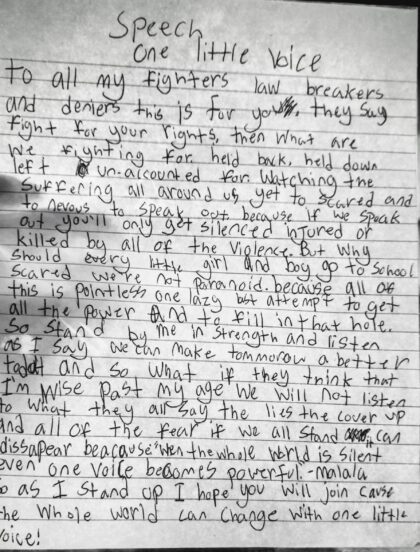 Speech
One little Voice
To all my fighters law breakers
and deniers this is for you, they say
fight for your rights, then what are
We fighting for held back, held down
left un-accounted for watching the
suffering all around us yet to scared and
to nevous to speak out because if we speak
out you'll only get silenced injured or
killed by all of the violence. But why
should every little girl and boy go to school
scared we're not paranoid. because all of
this is pointless one lazy attempt to get
all the power And to fill in that hole.
So stand by me in strength and listen
as I say we can make tommorow a better
and so what if they think that
I'm wise past my age we will not listen
to what they all say the lies the cover up
And all of the fear if we all stand it can
dissapear beacause "When the whole world is silent
even one voice becomes powerful"-malala
So as I stand up I hope you will join cause
the whole world can change with one little
Voice!